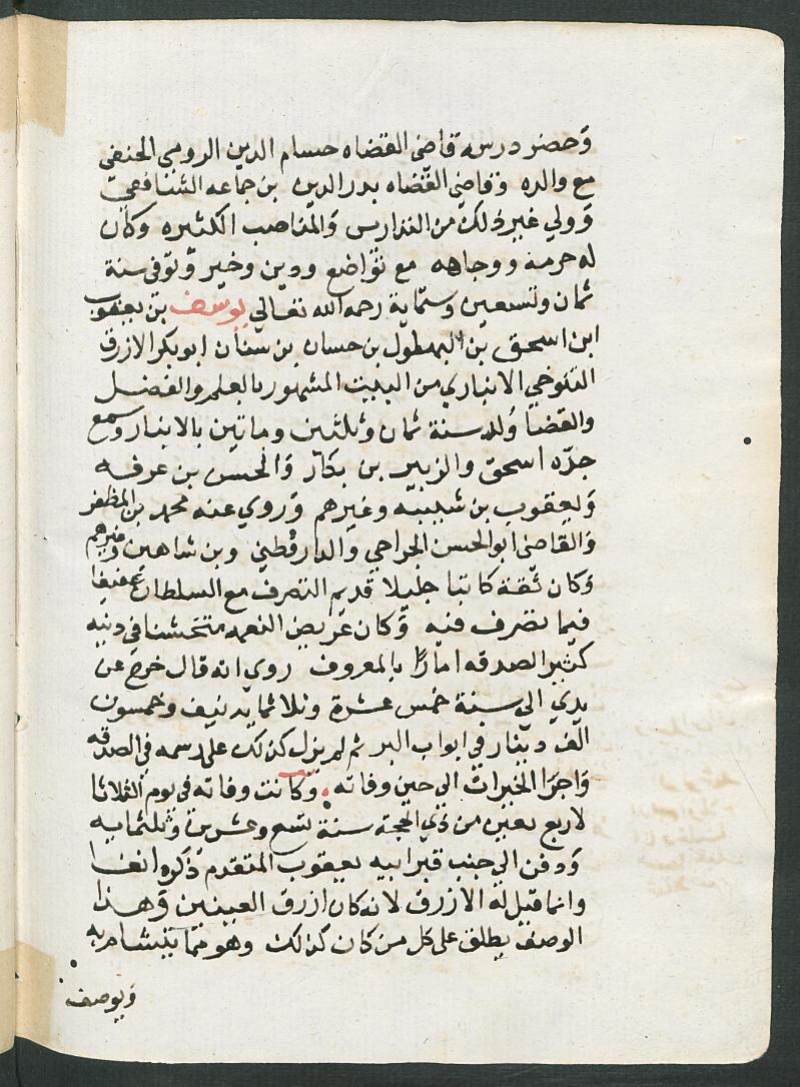 وحضر درسه قاضى القضاه حسام الدين الرومي الحنفى
مع والده وقاضي القضاه بدر الدين بن جماعه الشافعي
وولي غير ذلك من التدارس والمناصب الكثيره وكان
له حرمة ووجاهه مع تواضع ودين وخير وتوفى سنة
ثمان وتسعين وستماية رحمه الله تعالى يوسف بن يعقوب
ابن اسحق بن البهلول بن حسان بن سنان ابو بكر الازرق
التنوخي الانباري من البيت المشهور بالعلم والفضل
والقضا ولد سنة ثمان وثلثين وماتين بالانبار وسمع
جده اسحق والزبير بن بكار والحسن بن عرفه
ويعقوب بن شيبه وغيرهم وروي عنه محمد بن المظفر
والقاضى ابو الحسن الجراحي والدارقطني وبن شاهين وغيرهم
وكان ثقة كاتبا جليلا قديم التصرف مع السلطان عفيفا
فيما تصرف فيه وكان عريض النعمه متخشنا في دنيه
كثير الصدقه امارا بالمعروف روي انه قال خرج عن
يدي الي سنة خمس عشرة وثلاثمايه نيف وخمسون
الف دينار في ابواب البر ثم لم يزل كذلك على رسمه في الصدقه
واجرا الخيرات الى حين وفاته وكانت وفاته فى يوم الثلاثا
لاربع بقين من ذي الحجة سنة تسع وعشرين وثلثمايه
ودفن الي جنب قبر ابيه يعقوب المتقدم ذكره انفا
وانما قيل له الازرق لانه كان ازرق العينين وهذا
الوصف يطلق على كل من كان كذلك وهو مما يتشام به
ويوصف